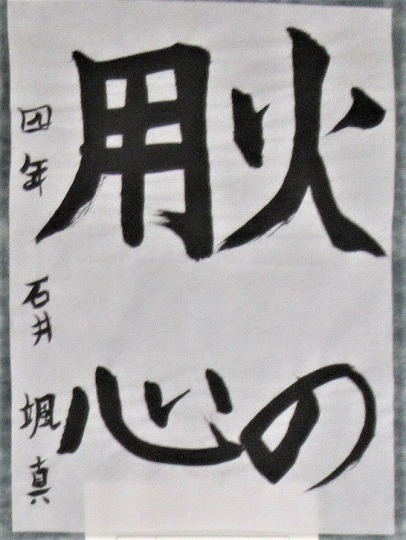 火の
用心
四年 石井 颯真